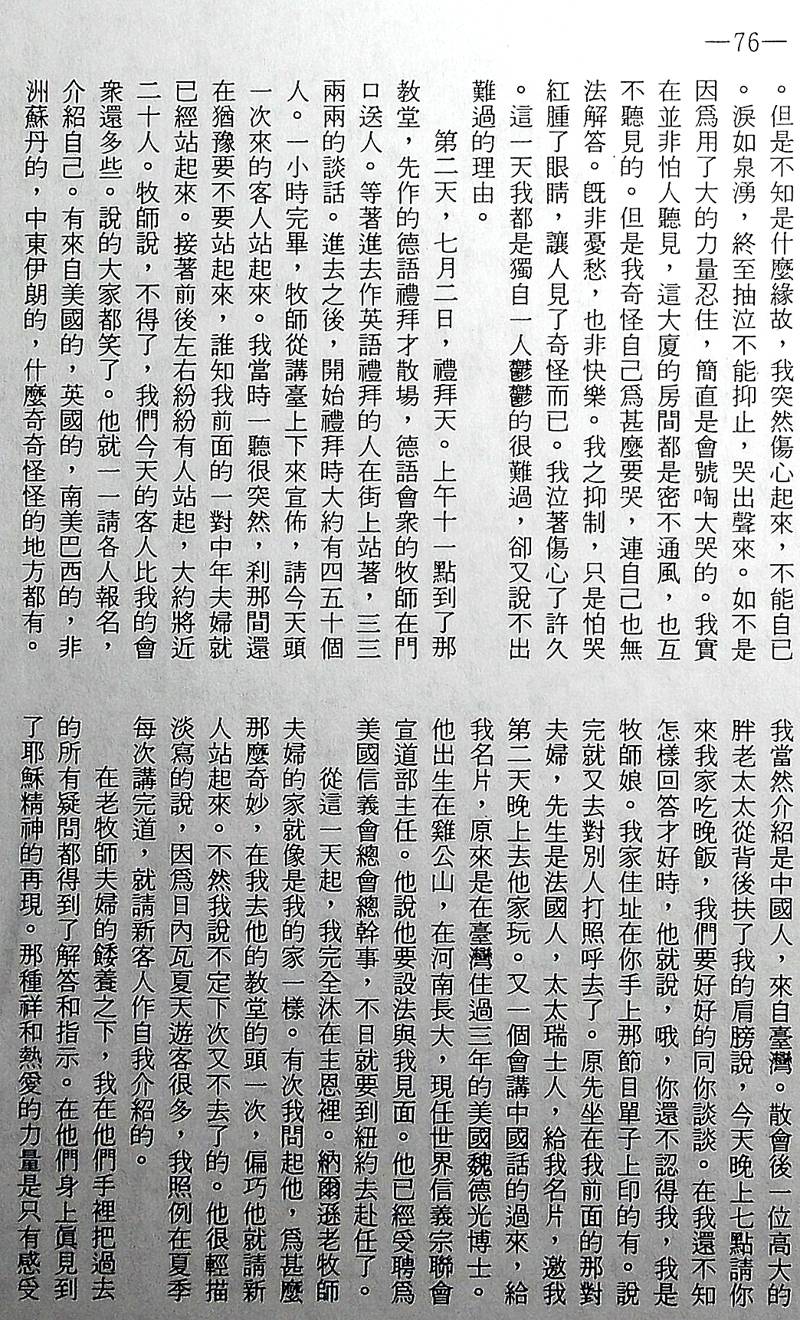 —76—
。但是不知是什麼緣故，我突然傷心起來，不能自已
。淚如泉湧，終至抽泣不能抑止，哭出聲來。如不是
因爲用了大的力量忍住，簡直是會號啕大哭的。我實
在並非怕人聽見，這大廈的房間都是密不通風，也互
不聽見的。但是我奇怪自己爲甚麼要哭，連自己也無
法解答。旣非憂愁，也非快樂。我之抑制，只是怕哭
紅腫了眼睛，讓人見了奇怪而已。我泣著傷心了許久
。這一天我都是獨自一人鬱鬱的很難過，卻又說不出
難過的理由。
第二天，七月二日，禮拜天。上午十一點到了那
教堂，先作的德語禮拜才散場，德語會衆的牧師在門
口送人。等著進去作英語禮拜的人在街上站著，三三
兩兩的談話。進去之後，開始禮拜時大約有四五十個
人。一小時完畢，牧師從講臺上下來宣佈，請今天頭
一次來的客人站起來。我當時一聽很突然，刹那間還
在猶豫要不要站起來，誰知我前面的一對中年夫婦就
已經站起來。接著前後左右紛紛有人站起，大約將近
二十人。牧師說，不得了，我們今天的客人比我的會
衆還多些。說的大家都笑了。他就一一請各人報名，
介紹自己。有來自美國的，英國的，南美巴西的，非
洲蘇丹的，中東伊朗的，什麼奇奇怪怪的地方都有。
我當然介紹是中國人，來自臺灣。散會後一位高大的
胖老太太從背後扶了我的肩膀說，今天晚上七點請你
來我家吃晚飯，我們要好好的同你談談。在我還不知
怎樣回答才好時，他就說，哦，你還不認得我，我是
牧師娘。我家住址在你手上那節目單子上印的有。說
完就又去對別人打照呼去了。原先坐在我前面的那對
夫婦，先生是法國人，太太瑞士人，給我名片，邀我
第二天晚上去他家玩。又一個會講中國話的過來，給
我名片，原來是在臺灣住過三年的美國魏德光博士。
他出生在雞公山，在河南長大，現任世界信義宗聯會
宣道部主任。他說他要設法與我見面。他已經受聘爲
美國信義會總會總幹事，不日就要到紐約去赴任了。
從這一天起，我完全沐在主恩裡。納爾遜老牧師
夫婦的家就像是我的家一樣。有次我問起他，爲甚麼
那麼奇妙，在我去他的教堂的頭一次，偏巧他就請新
人站起來。不然我說不定下次又不去了的。他很輕描
淡寫的說，因爲日內瓦夏天遊客很多，我照例在夏季
每次講完道，就請新客人作自我介紹的。
在老牧師夫婦的餧養之下，我在他們手裡把過去
的所有疑問都得到了解答和指示。在他們身上眞見到
了耶穌精神的再現。那種祥和熱愛的力量是只有感受